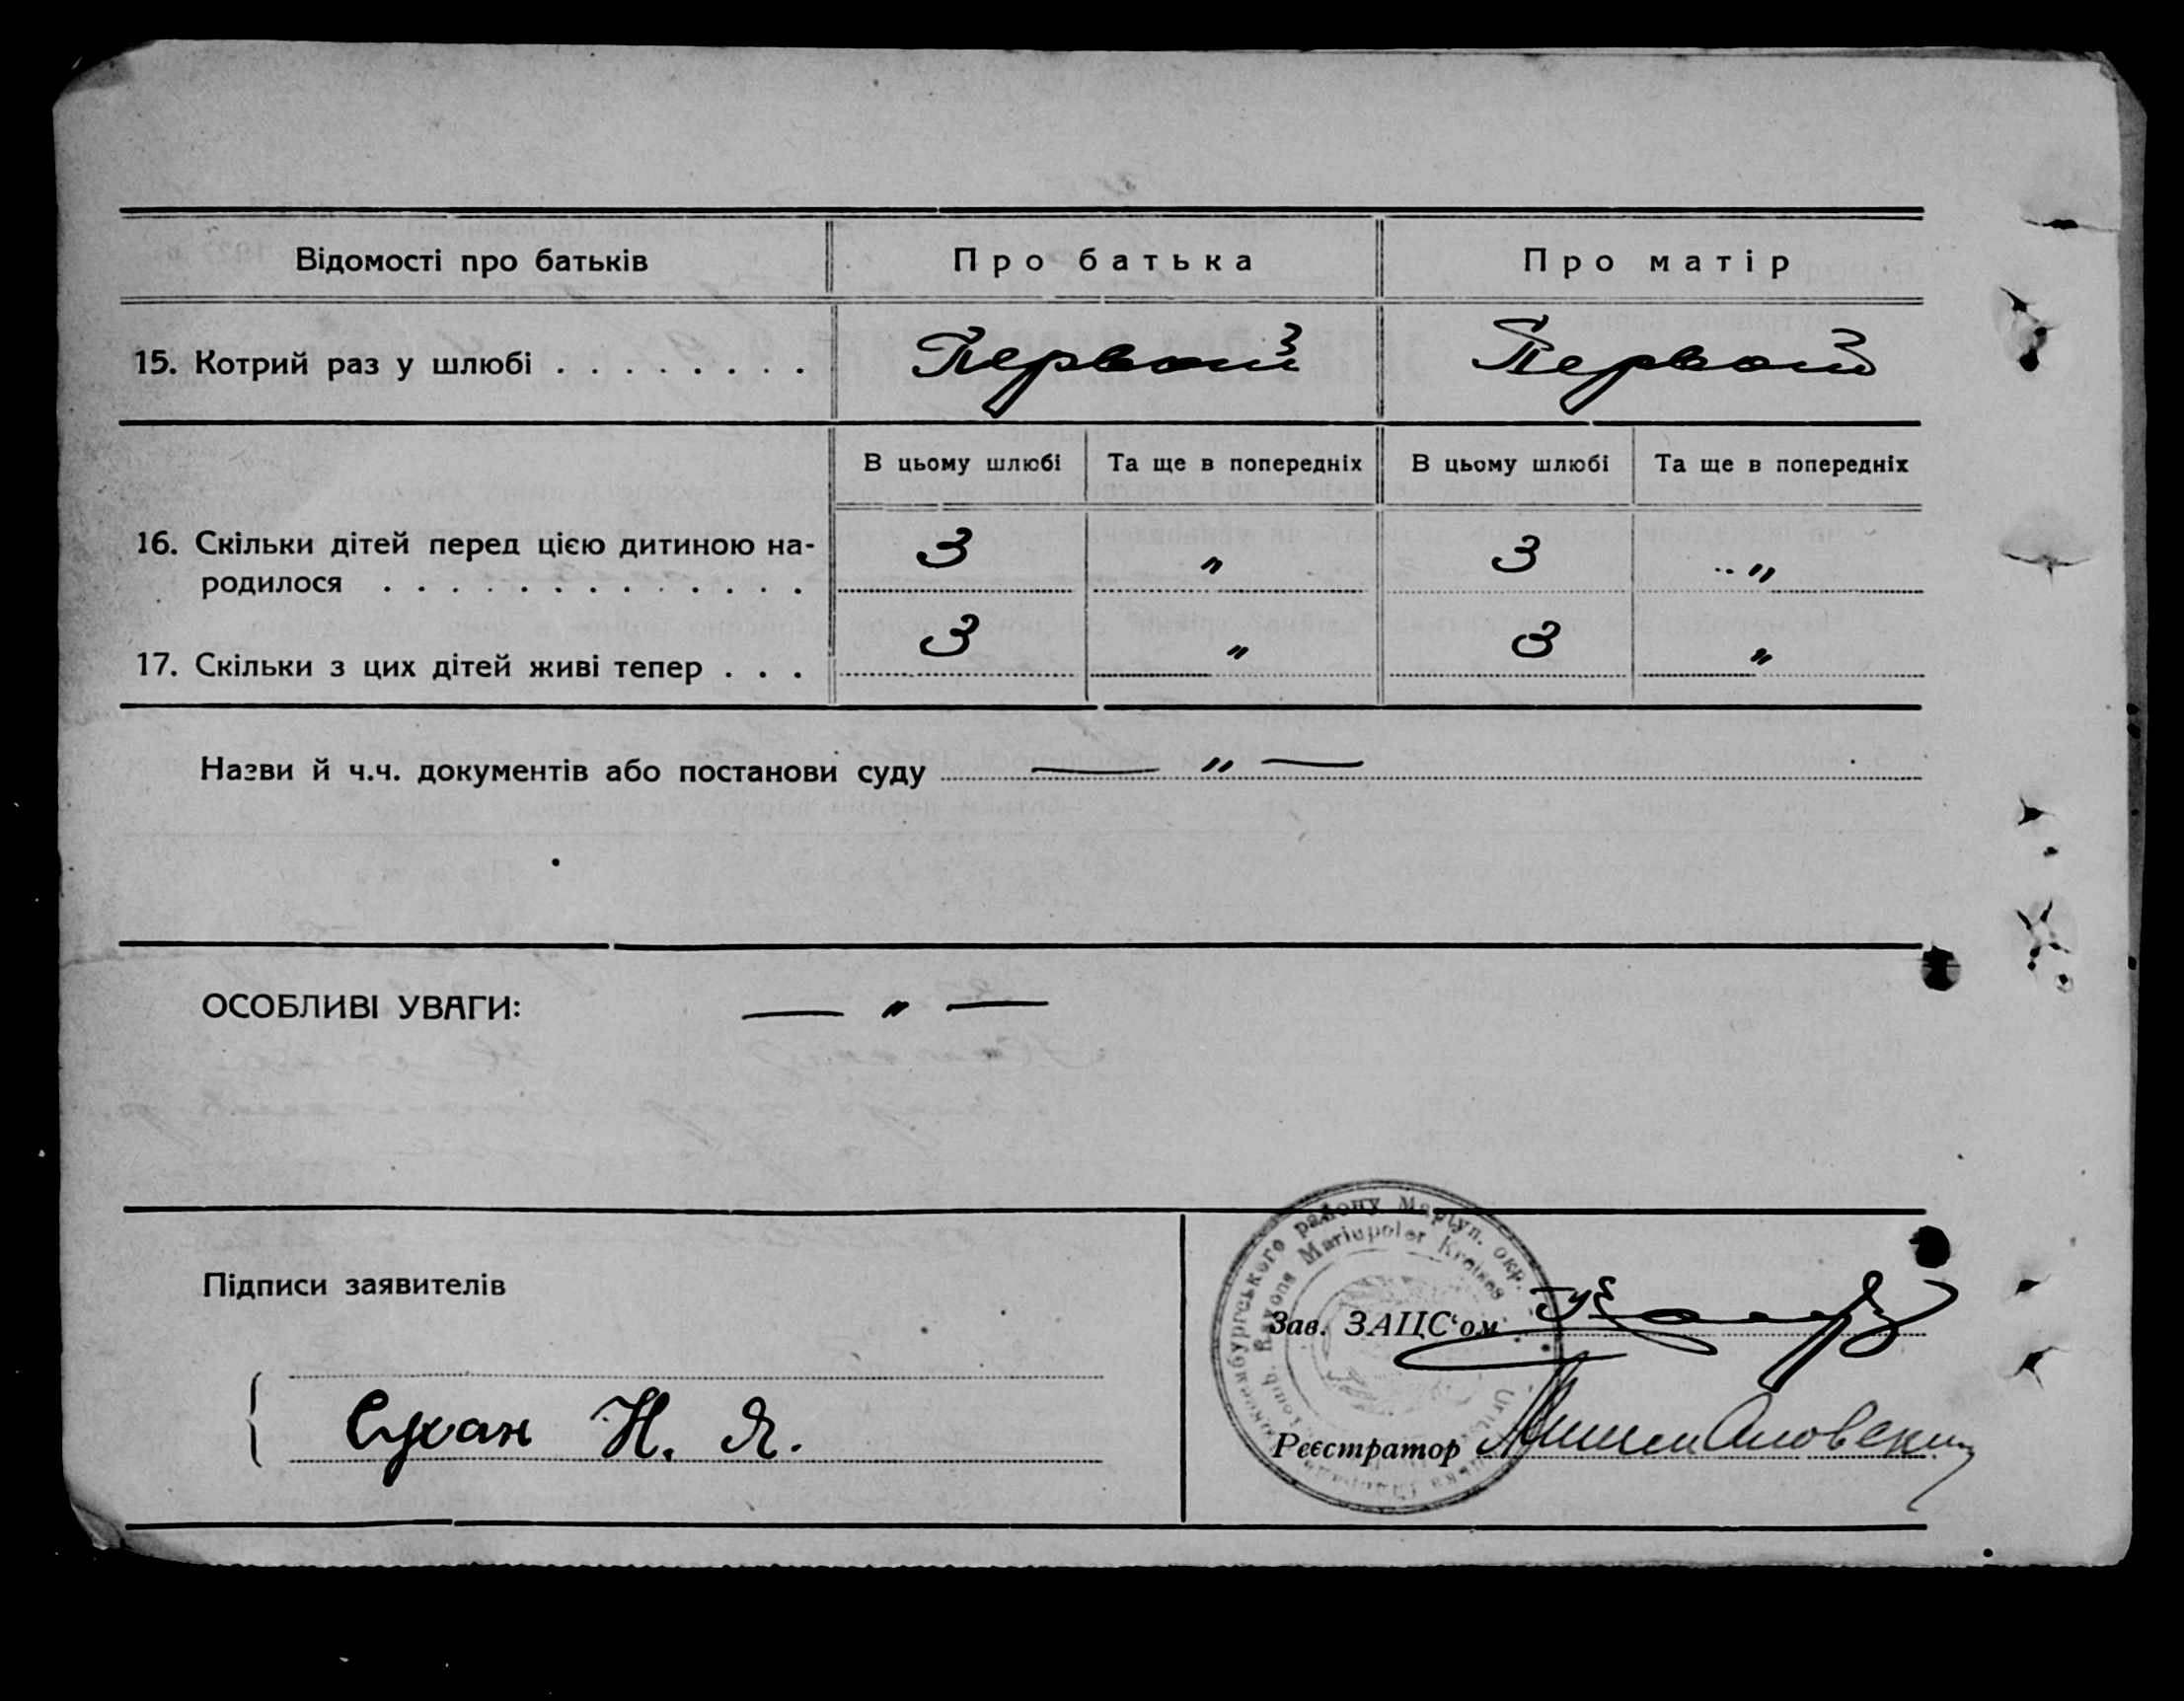 Відомості про батьків
Про батька
Про матір
15. Котрий раз у шлюбі . . . . . . . .
Первый
Первый
В цьому шлюбі
Та ще в попередніх
В цьому шлюбі
Та ще в попередніх
16. Скільки дітей перед цією дитиною на-
родилося . . . . . . . . . . . . .
3 " 3 "
17. Скільки з цих дітей живі тепер . . .
3 " 3 "
Назви й ч.ч. документів або постанови суду — " —
ОСОБЛИВІ УВАГИ: — " —
Підписи заявителів
Сухан Н. Я.
району Маріуп. окр.
Rayons Mariupoler Kreises
Зав. ЗАЦС'ом
Реєстратор